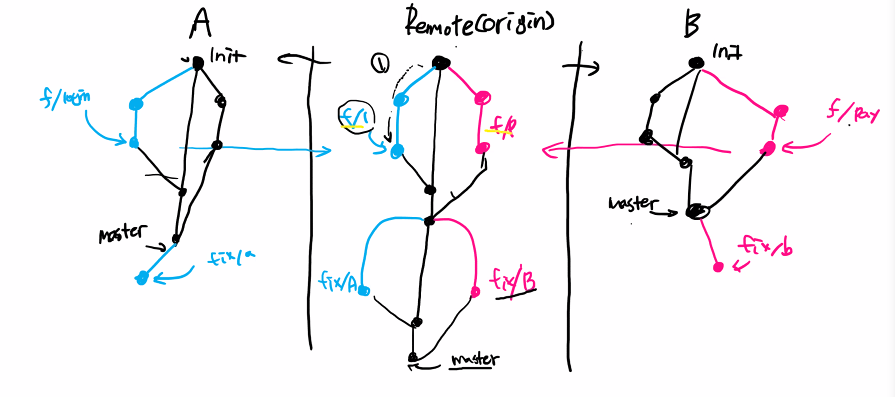 A
Init
f/login
master
fix/a
Remote(origin)
①
f/l
f/p
fix/A
fix/B
master
B
Init
f/pay
master
fix/b